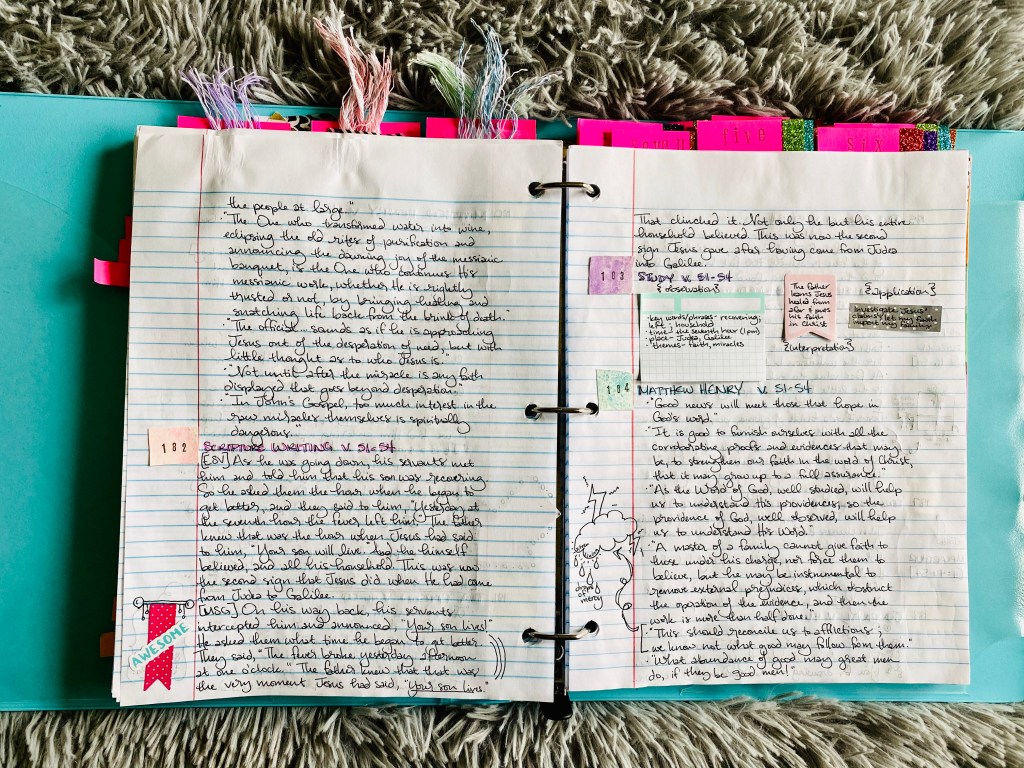 the people at large."
"The One who transformed water into wine,
eclipsing the old rites of purification and
announcing the dawning joy of the messianic
banquet, is the One who continues His
messianic work, whether He is rightly
trusted or not, by bringing healing and
snatching life back from the brink of death."
"The official sounds as if he is approaching
Jesus out of the desperation of need, but with
little thought as to who Jesus is."
"Not until after the miracle is any faith
displayed that goes beyond desperation."
"In John's Gospel, too much interest in the
raw miracles themselves is spiritually
dangerous."
182
SCRIPTURE WRITING v. 51-54
[ESV] As he was going down, his servants met
him and told him that his son was recovering.
So he asked them the hour when he began to
get better, and they said to him, "Yesterday at
the seventh hour the fever left him." The father
knew that was the hour when Jesus had said
to him, "Your son will live." And he himself
believed, and all his household. This was now
the second sign that Jesus did when He had come
from Judea to Galilee.
[MSG] On his way back, his servants
intercepted him and announced, "Your son lives!"
He asked them what time he began to get better.
They said, "The fever broke yesterday afternoon
at one o'clock." The father knew that that was
the very moment Jesus had said, "Your son lives."
AWESOME
five
six
That clinched it. Not only he but his entire
household believed. This was now the second
sign Jesus gave after having come from Judea
into Galilee.
183
STUDY v. 51-54
{observation}
•key words/phrases- recovering;
left; household
•time- the seventh hour (1pm)
•place- Judea, Galilee
•themes- faith, miracles
The father
learns Jesus
healed from
afar & puts
his faith
in Christ
{interpretation}
{application}
Investigate Jesus'
184
MATTHEW HENRY v. 51-54
"Good news will meet those that hope in
God's word."
"It is good to furnish ourselves with all the
corroborating proofs and evidences that may
be, to strengthen our faith in the word of Christ,
that it may grow up to a full assurance."
"As the Word of God, well studied, will help
us to understand His providences, so the
providence of God, well observed, will help
us to understand His Word."
"A master of a family cannot give faith to
those under his charge, nor force them to
believe, but he may be instrumental to
remove external prejudices, which obstruct
the operation of the evidence, and then the
work is more than half done."
"This should reconcile us to afflictions;
we know not what good may follow from them."
"What abundance of good may great men
do, if they be good men!"
drops
of
mercy